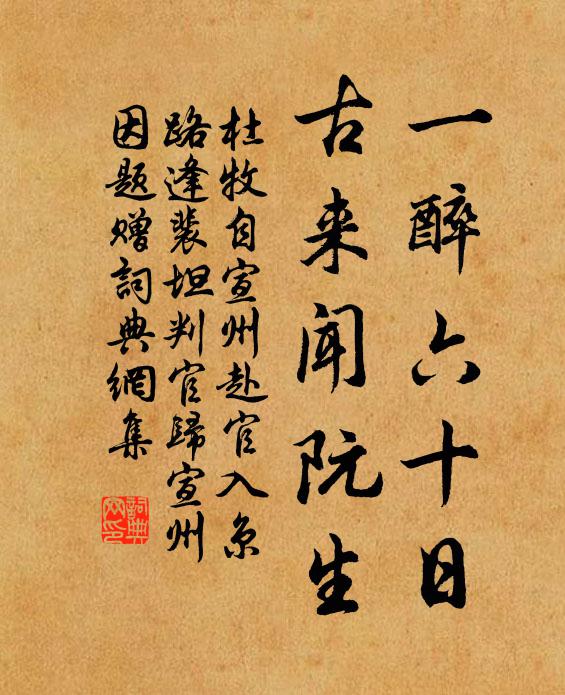 一醉六十日
古来闻阮生
杜牧自宣州赴官入京
路逢裴坦判官歸宣州
因题赠詞典網集
詞典
网印